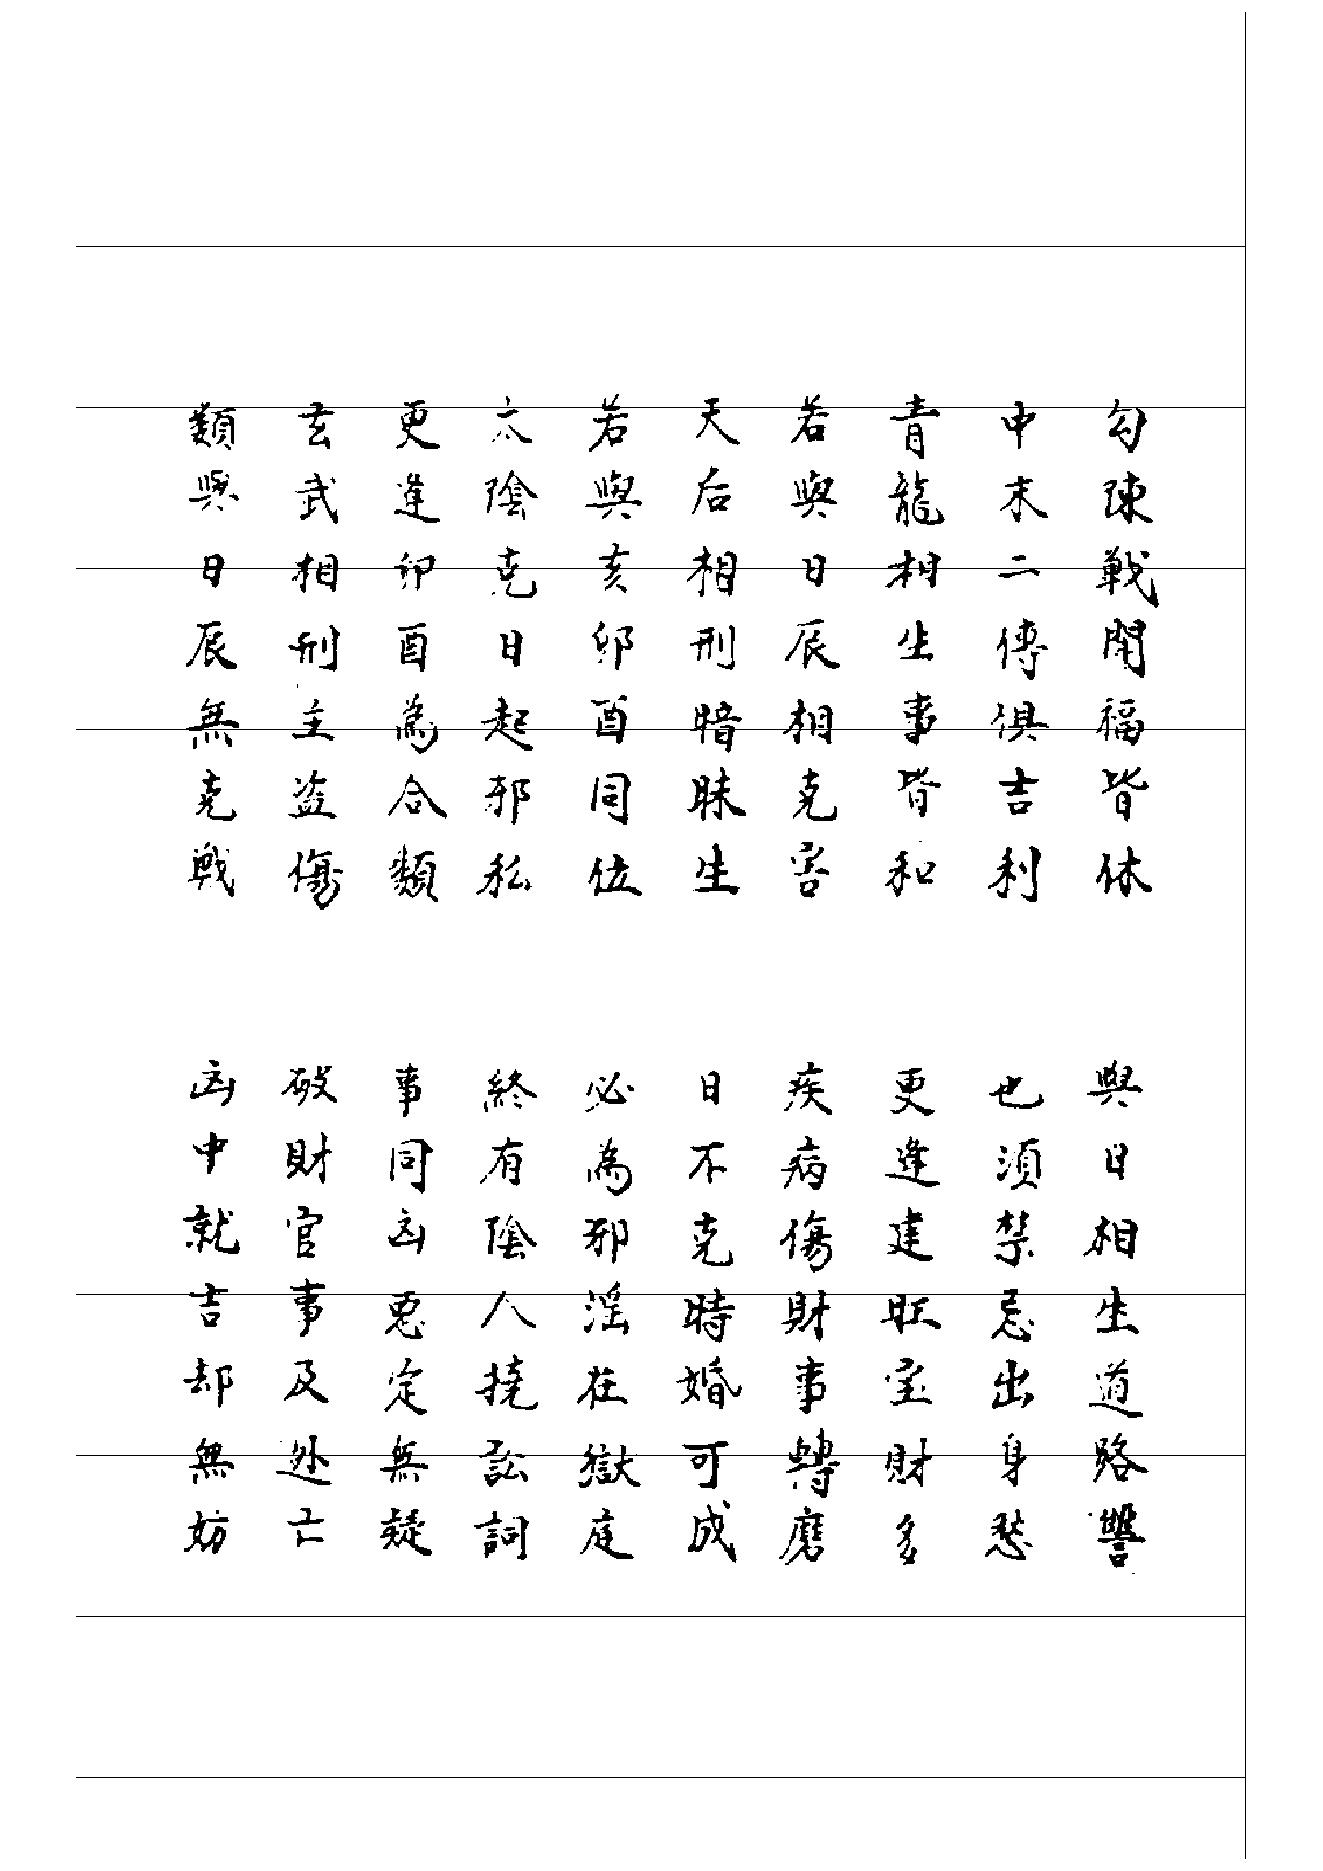 勾陳戰閗福皆休 與日相生道路讐
中末二傳俱吉利 也須禁忌出身愁
青龍相生事皆和 更逢建旺宝財多
若與日辰相克害 疾病傷財事轉磨
天后相刑暗昧生 日不克時婚可成
若與亥卯酉同位 必為邪淫在獄庭
太陰克日起邪私 終有陰人撓訟詞
更逢卯酉為合類 事同凶惡定無疑
玄武相刑主盜傷 破財官事及迯亡
類與日辰無克戰 凶中就吉却無妨